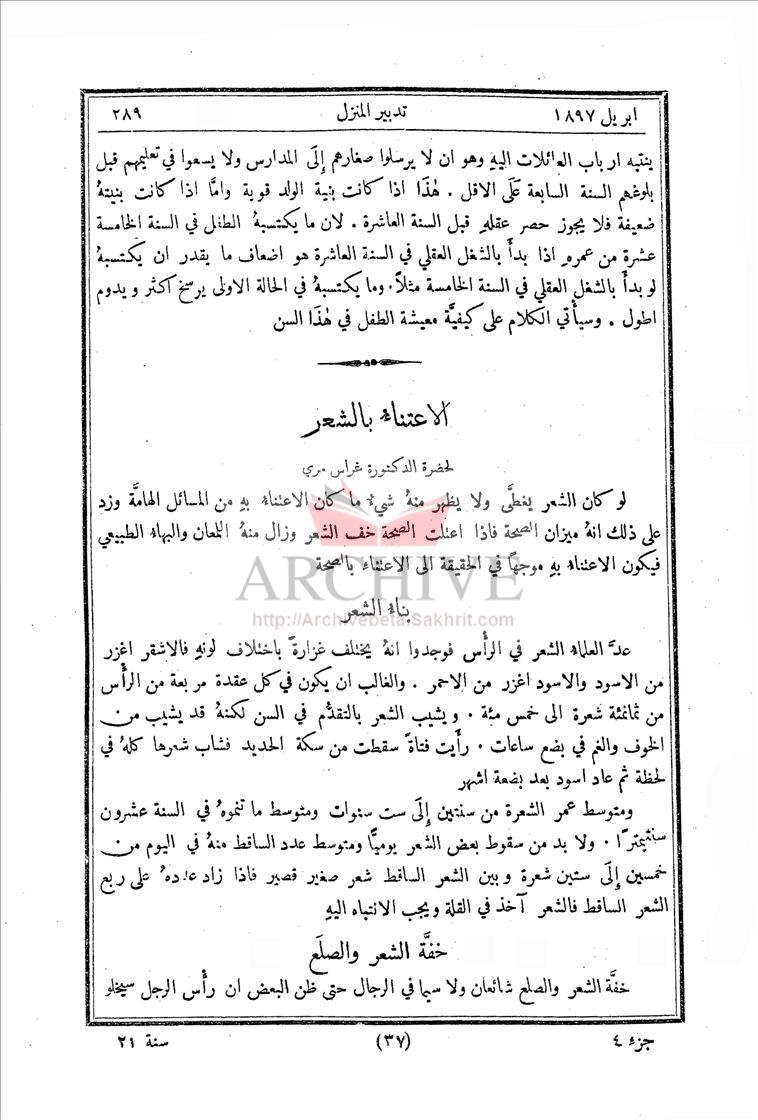 ابريل ١٨٩٧ تدبير المنزل ٢٨٩
ينتبه ارباب العائلات اليهِ وهو ان لا يرسلوا صغارهم إِلَى المدارس ولا يسعوا في تعليمهم قبل
بلوغهم السنة السابعة عَلَى الاقل . هٰذَا اذا كانت بنية الولد قوية وامَّا اذا كانت بنيتهُ
ضعيفة فلا يجوز حصر عقلهِ قبل السنة العاشرة . لان ما يكتسبهُ الطفل في السنة الخامسة
عشرة من عمرهِ اذا بدأَ بالشغل العقلي في السنة العاشرة هو اضعاف ما يقدر ان يكتسبهُ
لو بدأَ بالشغل العقلي في السنة الخامسة مثلاً . وما يكتسبهُ في الحالة الاولى يرسخ اكثر ويدوم
اطول . وسيأتي الكلام على كيفيَّة معيشة الطفل في هٰذَا السن
الاعتناءُ بالشعر
لحضرة الدكتورة غراس مري
لو كان الشعر يغطَّى ولا يظهر منهُ شيءٌ ما كان الاعتناءُ بهِ من المسائل الهامَّة وزد
على ذلك انهُ ميزان الصحة فاذا اعتلت الصحة خف الشعر وزال منهُ اللمعان والبهاءُ الطبيعي
فيكون الاعتناءُ بهِ موجهاً في الحقيقة الى الاعتناء بالصحة
ARCHIVE
http://Archivebeta.Sakhrit.com
بناءُ الشعر
عدَّ العلماءُ الشعر في الرأْس فوجدوا انهُ يختلف غزارةً باختلاف لونهِ فالاشقر اغزر
من الاسود والاسود اغزر من الاحمر . والغالب ان يكون في كل عقدة مربعة من الرأْس
من ثمانمئة شعرة الى خمس مئة . ويشيب الشعر بالتقدُّم في السن لكنهُ قد يشيب من
الخوف والغم في بضع ساعات . رأَيت فتاةً سقطت من سكة الحديد فشاب شعرها كلهُ في
لحظة ثم عاد اسود بعد بضعة اشهر
ومتوسط عمر الشعرة من سنتين إِلَى ست سنوات ومتوسط ما تنموهُ في السنة عشرون
سنتيمترًا . ولا بد من سقوط بعض الشعر يوميًّا ومتوسط عدد الساقط منهُ في اليوم من
خمسين إِلَى ستين شعرة وبين الشعر الساقط شعر صغير قصير فاذا زاد عددهُ على ربع
الشعر الساقط فالشعر آخذ في القلة ويجب الانتباه اليهِ
خفَّة الشعر والصلَع
خفَّة الشعر والصلع شائعان ولا سيما في الرجال حتى ظن البعض ان رأْس الرجل سيخلو
جزء ٤ (٣٧) سنة ٢١